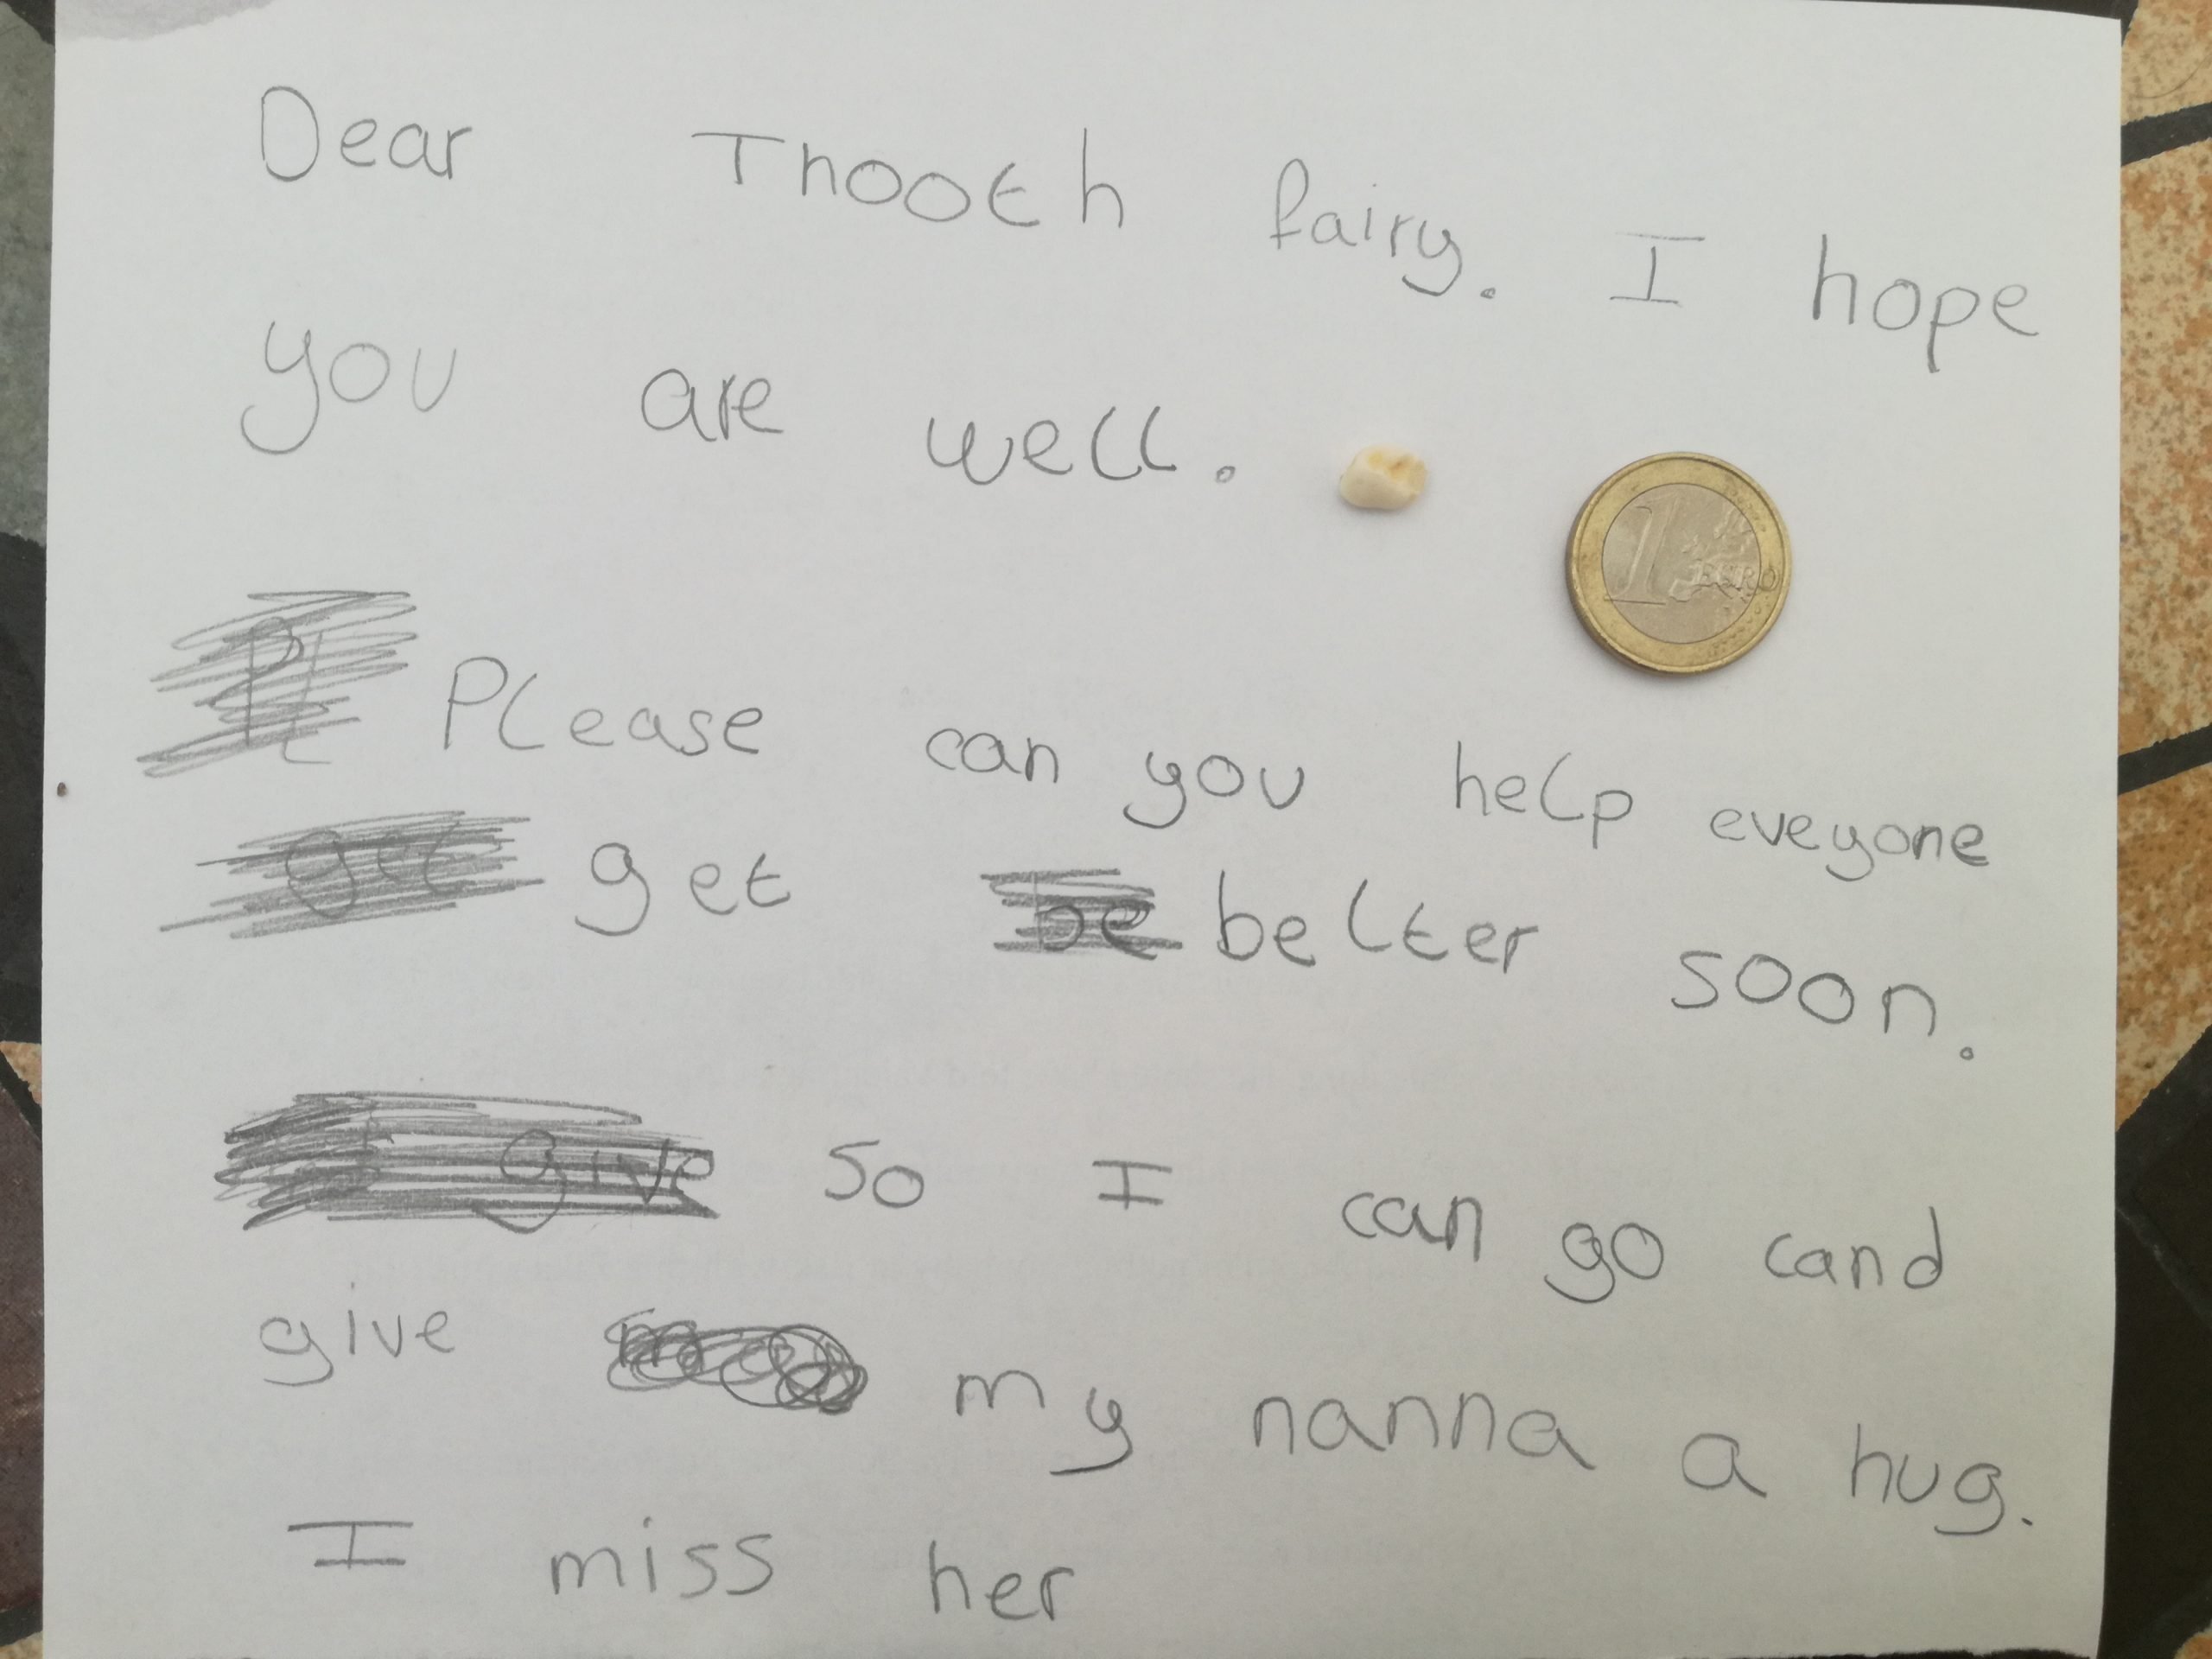 Dear Thooth fairy. I hope
you are well.
1 EURO
Please can you help eveyone
get better soon.
so I can go cand
give my nanna a hug.
I miss her